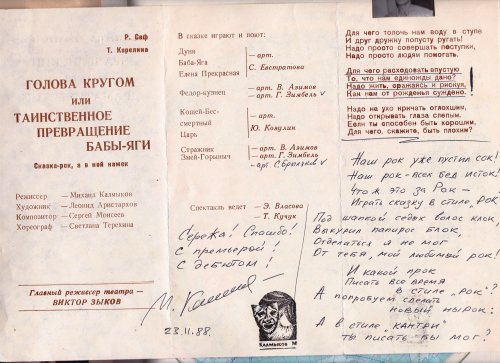 Р. Сеф
Т. Карелина
ГОЛОВА КРУГОМ
ИЛИ
ТАИНСТВЕННОЕ
ПРЕВРАЩЕНИЕ
БАБЫ-ЯГИ
Сказка-рок, а в ней намек
Режиссер — Михаил Калмыков
Художник — Леонид Аристархов
Композитор — Сергей Моисеев
Хореограф — Светлана Терехина
Главный режиссер театра —
ВИКТОР ЗЫКОВ
В сказке играют и поют:
Дуня
Баба-Яга — арт.
Елена Прекрасная С. Евстратова
Федор-кузнец — арт. В. Азимов
— арт. Г. Зимбель v
Кощей-Бес-
смертный — арт.
Царь Ю. Ковулин
Стражник — арт. В. Азимов
Змей-Горыныч — арт. Г. Зимбель
— арт. С.
Спектакль ведет — Э. Власова
Т. Кучук
Сережа! Спасибо!
С премьерой!
С дебютом!
23.11.88.
КАЛМЫКОВ М
Для чего толочь нам воду в ступе
И друг дружку попусту ругать!
Надо просто совершать поступки,
Надо просто людям помогать.
Для чего расходовать впустую
То, что нам единожды дано?
Надо жить, сражаясь и рискуя,
Как нам от рожденья суждено.
Надо на ухо кричать оглохшим,
Надо открывать глаза слепым.
Если ты способен быть хорошим,
Для чего, скажите, быть плохим?
Наш рок уже пустил сок!
Наш рок - всех бед исток!
Что ж это за Рок —
Играть сказку в стиле, рок
Под шапкой седых волос клок,
Выкурил папирос блок,
Отделаться я не мог
От тебя, мой любимый рок!
И какой прок
Писать все время
в стиле "рок"?
А попробуем сделать
новый нырок:
А в стиле "кантри"
ты писать бы мог?